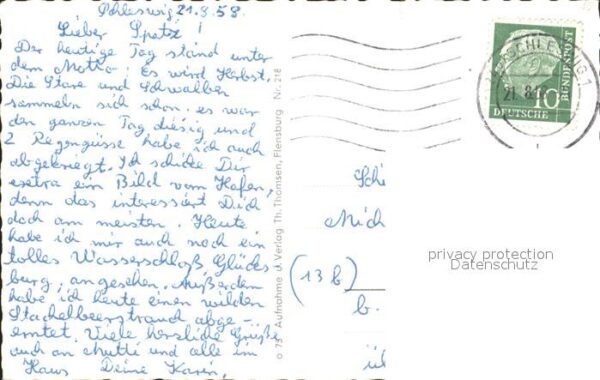 Schleswig 21.8.58.
Lieber Spatz!
Der heutige Tag stand unter
dem Motto: Es wird Herbst.
Die Stare und Schwalben
sammeln sich schon. es war
den ganzen Tag diesig und
2 Regengüsse habe ich auch
abgekriegt. Ich schicke Dir
extra ein Bild vom Hafen,
denn das interessiert Dich
doch am meisten. Heute
habe ich mir auch noch ein
tolles Wasserschloß, Glücks
burg, angesehen. Außerdem
habe ich heute einen wilden
Stachelbeerstrauch abge-
erntet. Viele herzliche Grüße
auch an Mutti und alle im
Haus Deine Karin.
o 73 Aufnahme u. Verlag Th. Thomsen, Flensburg Nr. 218
SCHLESWIG 1
21.8.58
10
DEUTSCHE
BUNDESPOST
Schi
Mich
(13b)
b.
üb
privacy protection
Datenschutz